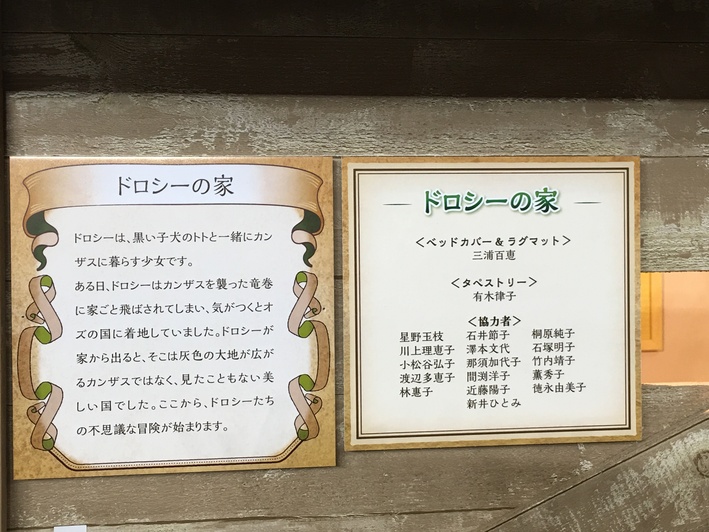 ドロシーの家
ドロシーは、黒い子犬のトトと一緒にカン
ザスに暮らす少女です。
ある日、ドロシーはカンザスを襲った竜巻
に家ごと飛ばされてしまい、気がつくとオ
ズの国に着地していました。ドロシーが
家から出ると、そこは灰色の大地が広が
るカンザスではなく、見たこともない美
しい国でした。ここから、ドロシーたち
の不思議な冒険が始まります。
ドロシーの家
<ベッドカバー&ラグマット>
三浦百恵
<タペストリー>
有木律子
<協力者>
星野玉枝 石井節子 桐原純子
川上理恵子 澤本文代 石塚明子
小松谷弘子 那須加代子 竹内靖子
渡辺多恵子 間渕洋子 薫秀子
林惠子 近藤陽子 徳永由美子
新井ひとみ